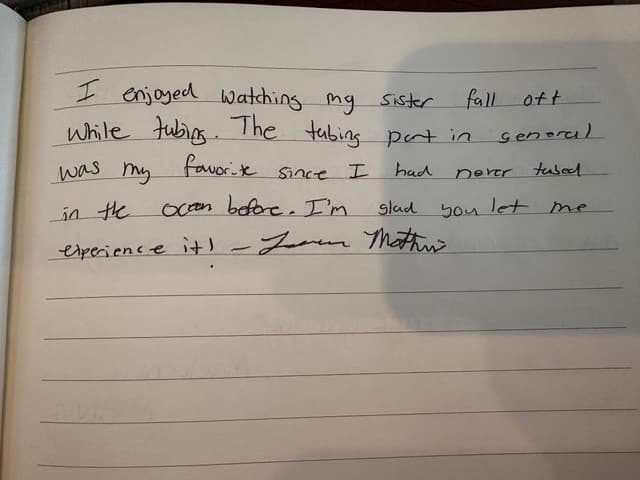 I enjoyed watching my sister fall off
while tubing. The tubing part in general
was my favorite since I had never tubed
in the ocean before. I'm glad you let me
experience it! -